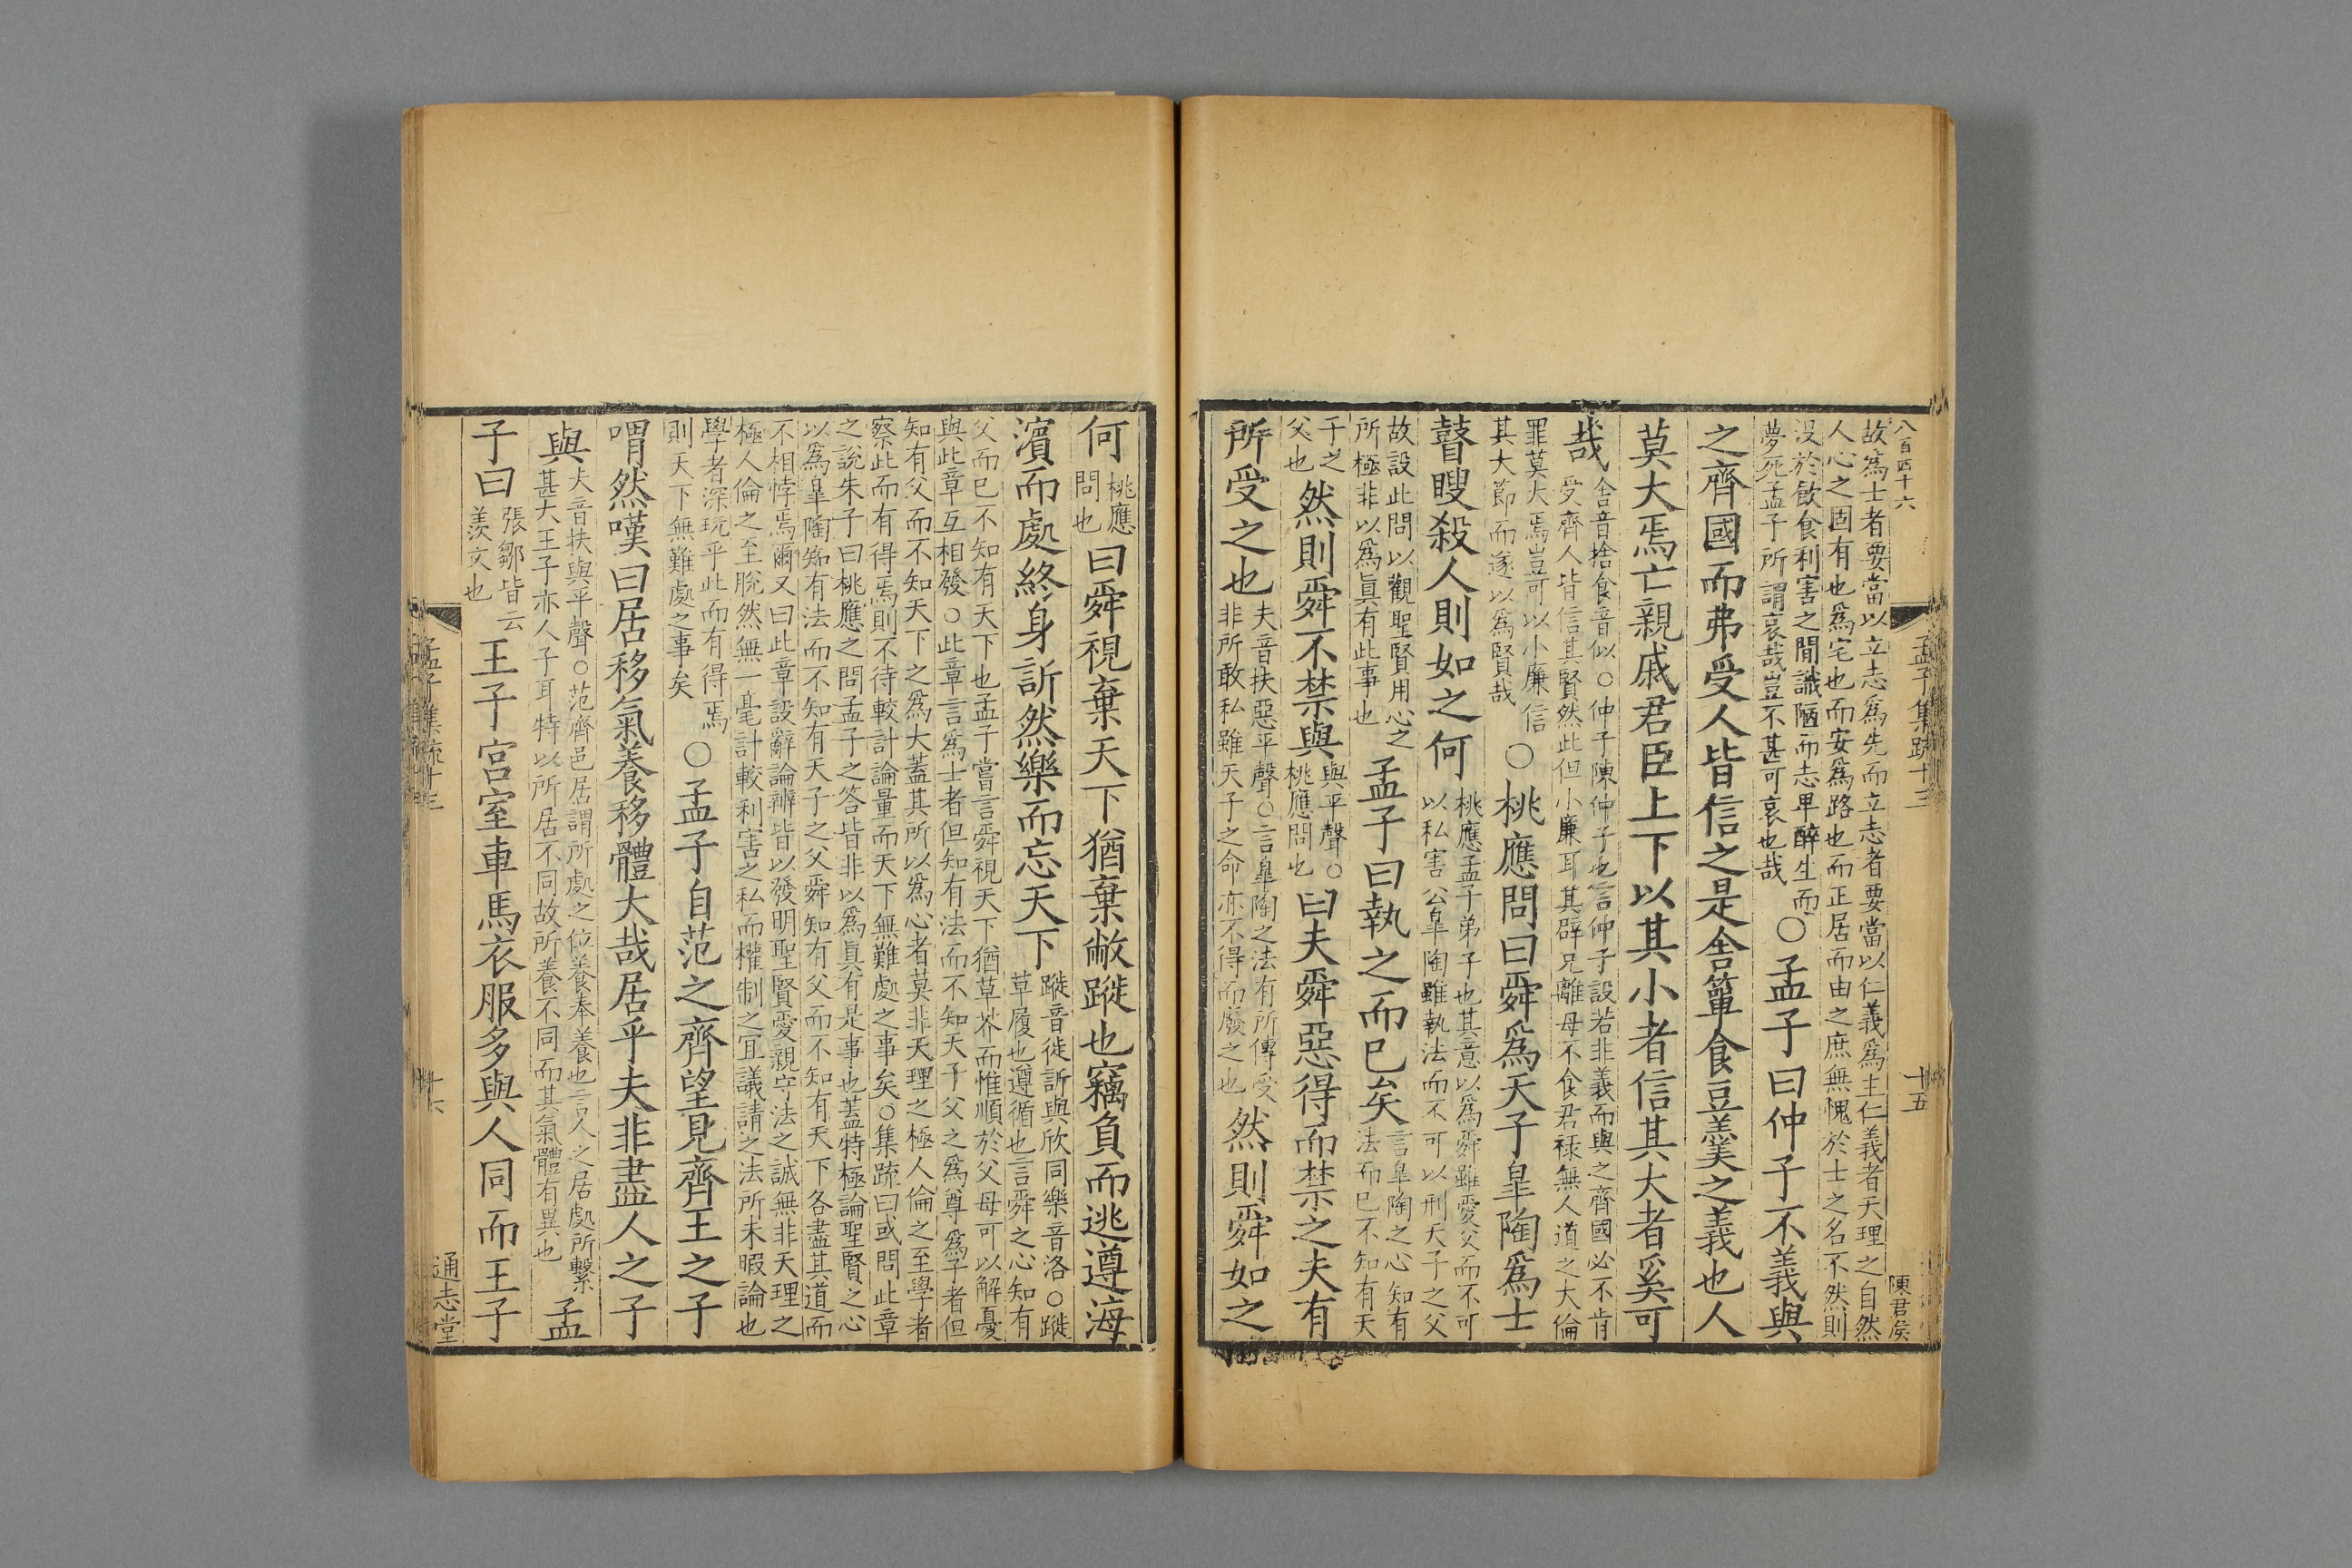 八百四十六
孟子集疏十三
十五
陳君侯
故爲士者要當以立志爲先而立志者要當以仁義爲主仁義者天理之自然
人心之固有也爲宅也而安爲路也而正居而由之庶無愧於士之名不然則
没於飲食利害之間識陋而志卑醉生而
夢死孟子所謂哀哉豈不甚可哀也哉
○孟子曰仲子不義與
之齊國而弗受人皆信之是舍簞食豆羹之義也人
莫大焉亡親戚君臣上下以其小者信其大者奚可
哉
舍音捨食音似○仲子陳仲子也言仲子設若非義而與之齊國必不肯
受齊人皆信其賢然此但小廉耳其辟兄離母不食君禄無人道之大倫
罪莫大焉豈可以小廉信
其大節而遂以爲賢哉
○桃應問曰舜爲天子皐陶爲士
瞽瞍殺人則如之何
桃應孟子弟子也其意以爲舜雖愛父而不可
以私害公皐陶雖執法而不可以刑天子之父
故設此問以觀聖賢用心之
所極非以爲眞有此事也
孟子曰執之而已矣
言皐陶之心知有
法而已不知有天
子之
父也
然則舜不禁與
與平聲○
桃應問也
曰夫舜惡得而禁之夫有
所受之也
夫音扶惡平聲○言皐陶之法有所傳受
非所敢私雖天子之命亦不得而廢之也
然則舜如之
何
桃應
問也
曰舜視棄天下猶棄敝蹝也竊負而逃遵海
濵而處終身訢然樂而忘天下
蹝音徙訢與欣同樂音洛○蹝
草履也遵循也言舜之心知有
父而已不知有天下也孟子嘗言舜視天下猶草芥而惟順於父母可以解憂
與此章互相發○此章言爲士者但知有法而不知天子父之爲尊爲子者但
知有父而不知天下之爲大蓋其所以爲心者莫非天理之極人倫之至學者
察此而有得焉則不待較計論量而天下無難處之事矣○集疏曰或問此章
之說朱子曰桃應之問孟子之答皆非以爲眞有是事也蓋特極論聖賢之心
以爲皐陶知有法而不知有天子之父舜知有父而不知有天下各盡其道而
不相悖焉爾又曰此章設辭論辨皆以發明聖賢愛親守法之誠無非天理之
極人倫之至脫然無一毫計較利害之私而權制之宜議請之法所未暇論也
學者深玩乎此而有得焉
則天下無難處之事矣
○孟子自范之齊望見齊王之子
喟然嘆曰居移氣養移體大哉居乎夫非盡人之子
與
夫音扶與平聲○范齊邑居謂所處之位養奉養也言人之居處所繫
甚大王子亦人子耳特以所居不同故所養不同而其氣體有異也
孟
子曰
張鄒皆云
羨文也
王子宮室車馬衣服多與人同而王子
孟子集疏十三
十六
通志堂